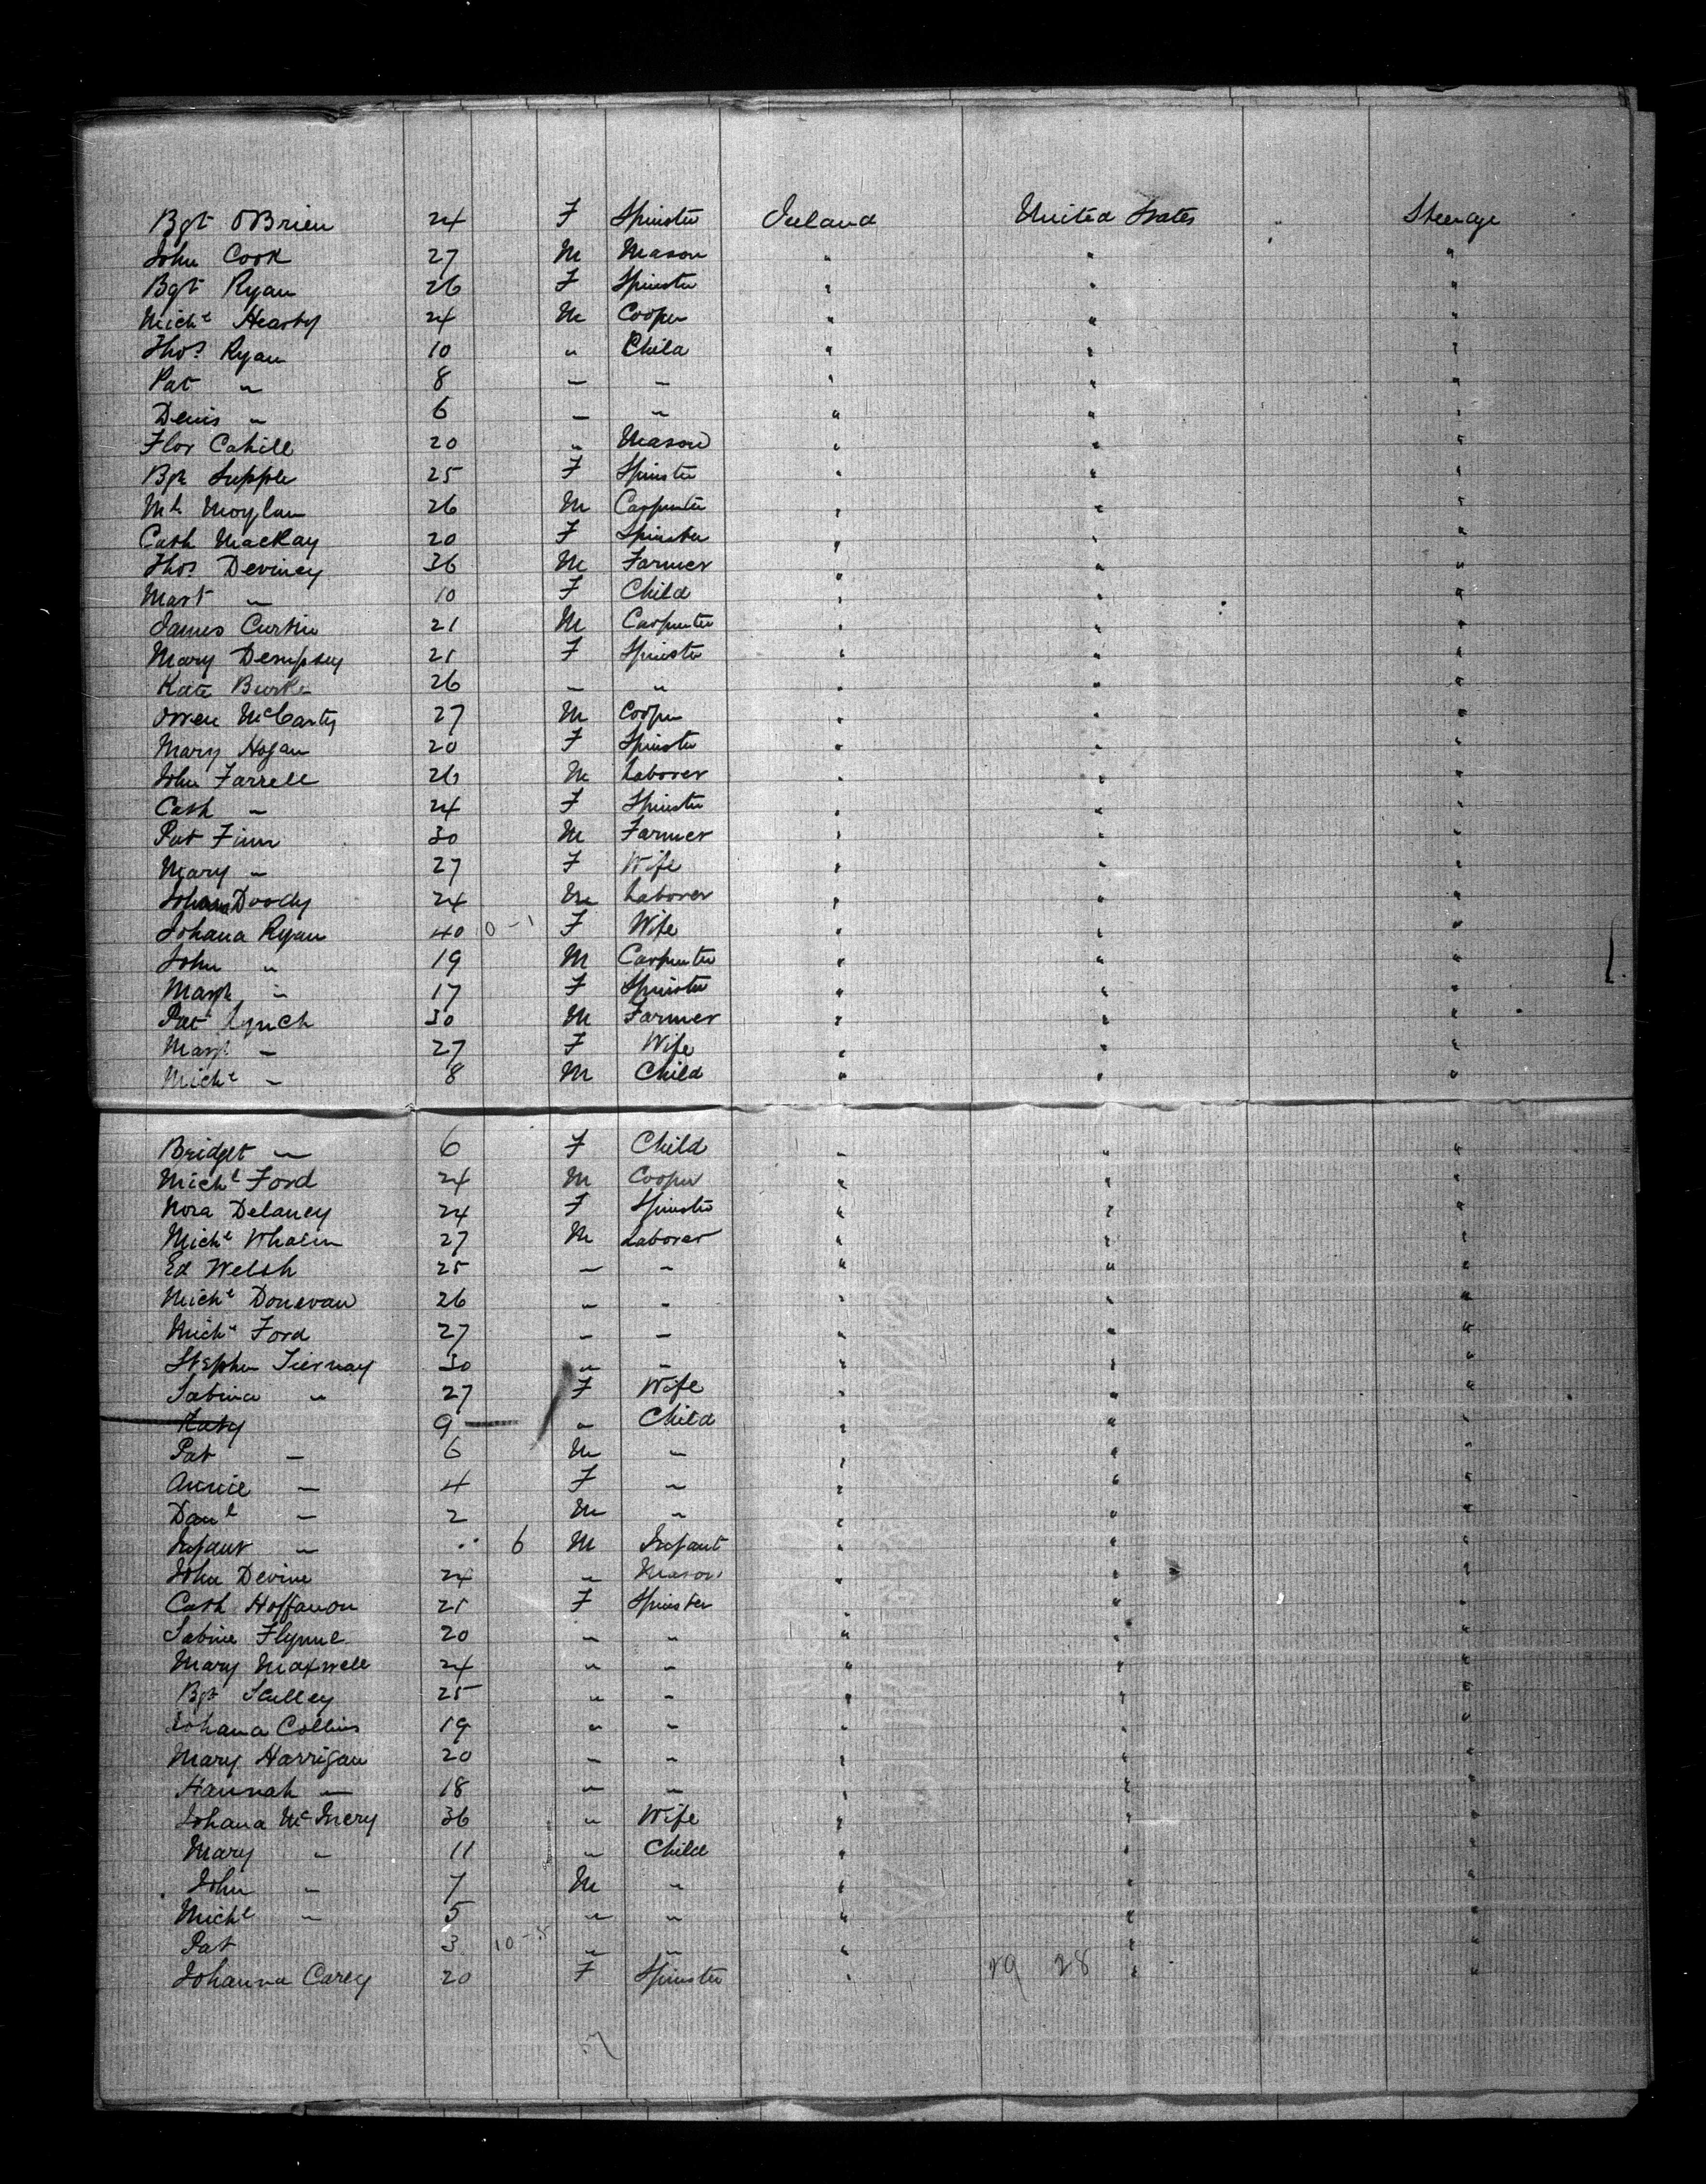 Bgt OBrien 24 F Spinster Ireland United States " Steerage
John Cook 27 M Mason " " "
Bgt Ryan 26 F Spinster " " "
Michl Hearty 24 M Cooper " " "
Thos Ryan 10 " Child " " "
Pat " 8 " " " " "
Denis " 6 " " " " "
Flor Cahill 20 " Mason " " "
Bgt Supple 25 F Spinster " " "
Ml Moylan 26 M Carpenter " " "
Cath MacKay 20 F Spinster " " "
Thos Deviney 36 M Farmer " " "
Mart " 10 F Child " " "
James Curtin 21 M Carpenter " " "
Mary Dempsey 21 F Spinster " " "
Kate Burke 26 " " " " "
Owen McCarty 27 M Cooper " " "
Mary Hogan 20 F Spinster " " "
John Farrell 26 M Laborer " " "
Cath " 24 F Spinster " " "
Pat Finn 30 M Farmer " " "
Mary " 27 F Wife " " "
John Doody 24 M Laborer " " "
Johana Ryan 40 0-1 F Wife " " "
John " 19 M Carpenter " " "
Margt " 17 F Spinster " " "
Pat Lynch 30 M Farmer " " "
Margt " 27 F Wife " " "
Michl " 8 M Child " " "
Bridget " 6 F Child " " "
Michl Ford 24 M Cooper " " "
Nora Delaney 24 F Spinster " " "
Michl Whalen 27 M Laborer " " "
Ed Welsh 25 " " " " "
Michl Donevan 26 " " " " "
Michl Ford 27 " " " " "
Stephen Tiernay 30 " " " " "
Sabina " 27 F Wife " " "
Katy 9 " Child " " "
Pat " 6 M " " " "
Annie " 4 F " " " "
Danl " 2 M " " " "
Infant " 6 M Infant " " "
John Devine 24 " Mason " " "
Cath Hoffanon 21 F Spinster " " "
Sabine Flynne 20 " " " " "
Mary Maxwell 24 " " " " "
Bgt Sculley 25 " " " " "
Johana Collins 19 " " " " "
Mary Harrigan 20 " " " " "
Hannah " 18 " " " " "
Johana McInery 36 " Wife " " "
Mary " 11 " Child " " "
John " 7 M " " " "
Michl " 5 " " " " "
Pat 3 10-5 " " " " "
Johanna Carey 20 F Spinster " 29 28 " "